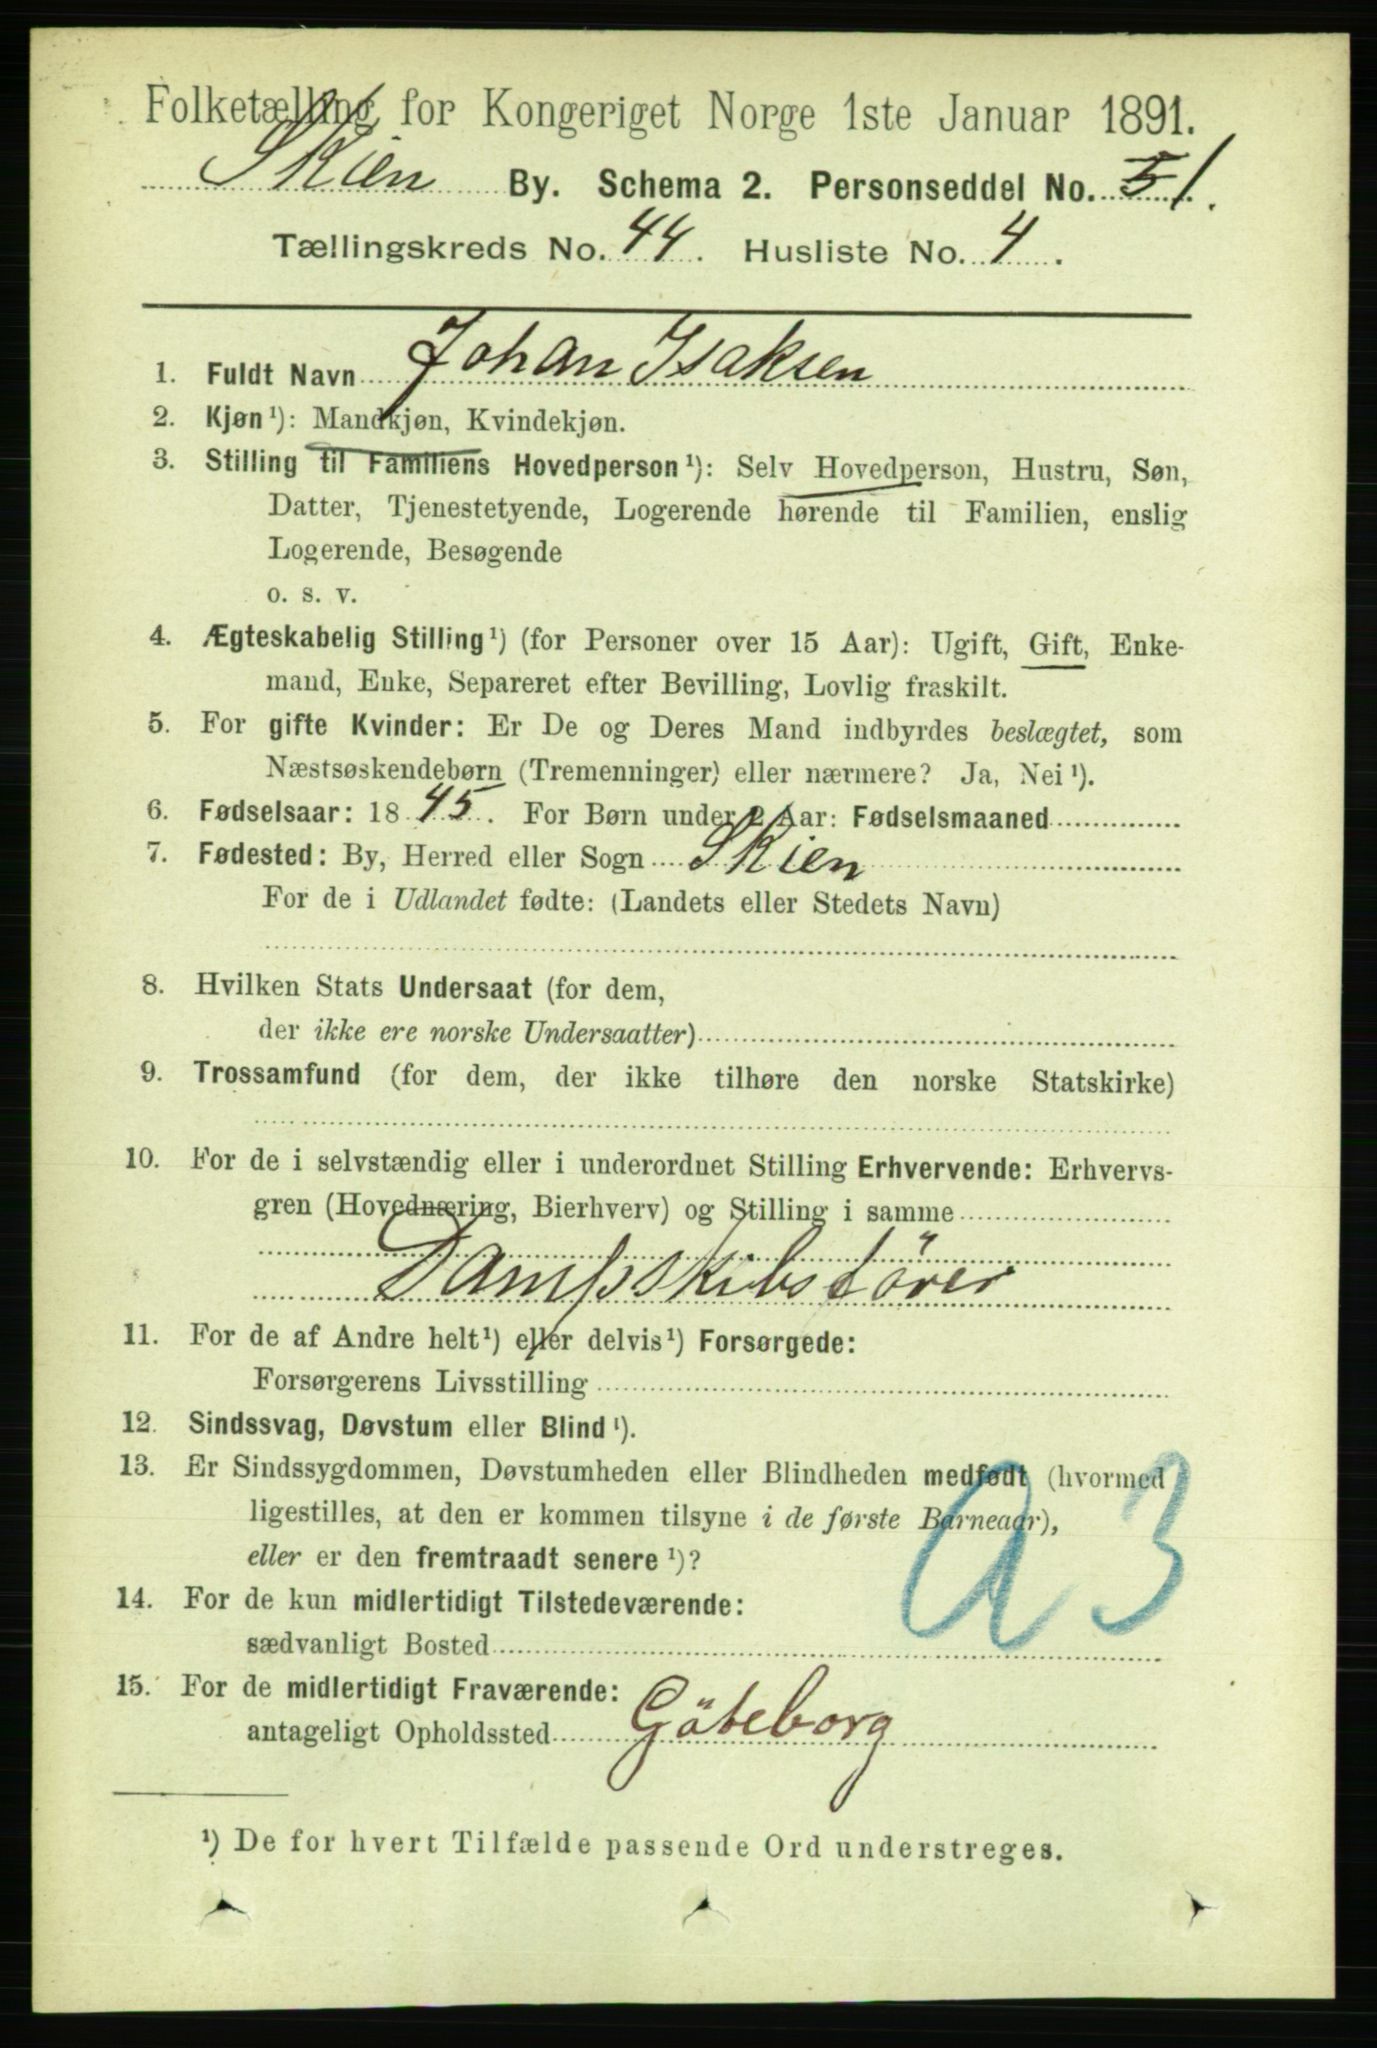 Folketælling for Kongeriget Norge 1ste Januar 1891.
Skien By. Schema 2. Personseddel No. 51.
Tællingskreds No. 44. Husliste No. 4.
1. Fuldt Navn Johan Isaksen
2. Kjøn¹): Mandkjøn, Kvindekjøn.
3. Stilling til Familiens Hovedperson¹): Selv Hovedperson, Hustru, Søn,
Datter, Tjenestetyende, Logerende hørende til Familien, enslig
Logerende, Besøgende
o. s. v.
4. Ægteskabelig Stilling¹) (for Personer over 15 Aar): Ugift, Gift, Enke-
mand, Enke, Separeret efter Bevilling, Lovlig fraskilt.
5. For gifte Kvinder: Er De og Deres Mand indbyrdes beslægtet, som
Næstsøskendebørn (Tremenninger) eller nærmere? Ja, Nei¹).
6. Fødselsaar: 1845. For Børn under 2 Aar: Fødselsmaaned
7. Fødested: By, Herred eller Sogn Skien
For de i Udlandet fødte: (Landets eller Stedets Navn)
8. Hvilken Stats Undersaat (for dem,
der ikke ere norske Undersaatter)
9. Trossamfund (for dem, der ikke tilhøre den norske Statskirke)
10. For de i selvstændig eller i underordnet Stilling Erhvervende: Erhvervs-
gren (Hovednæring, Bierhverv) og Stilling i samme
Dampskibsförer
11. For de af Andre helt¹) eller delvis¹) Forsørgede:
Forsørgerens Livsstilling
12. Sindssvag, Døvstum eller Blind¹).
13. Er Sindssygdommen, Døvstumheden eller Blindheden medfødt (hvormed
ligestilles, at den er kommen tilsyne i de første Barneaar),
eller er den fremtraadt senere¹)?
a 3
14. For de kun midlertidigt Tilstedeværende:
sædvanligt Bosted
15. For de midlertidigt Fraværende:
antageligt Opholdssted Göteborg
¹) De for hvert Tilfælde passende Ord understreges.